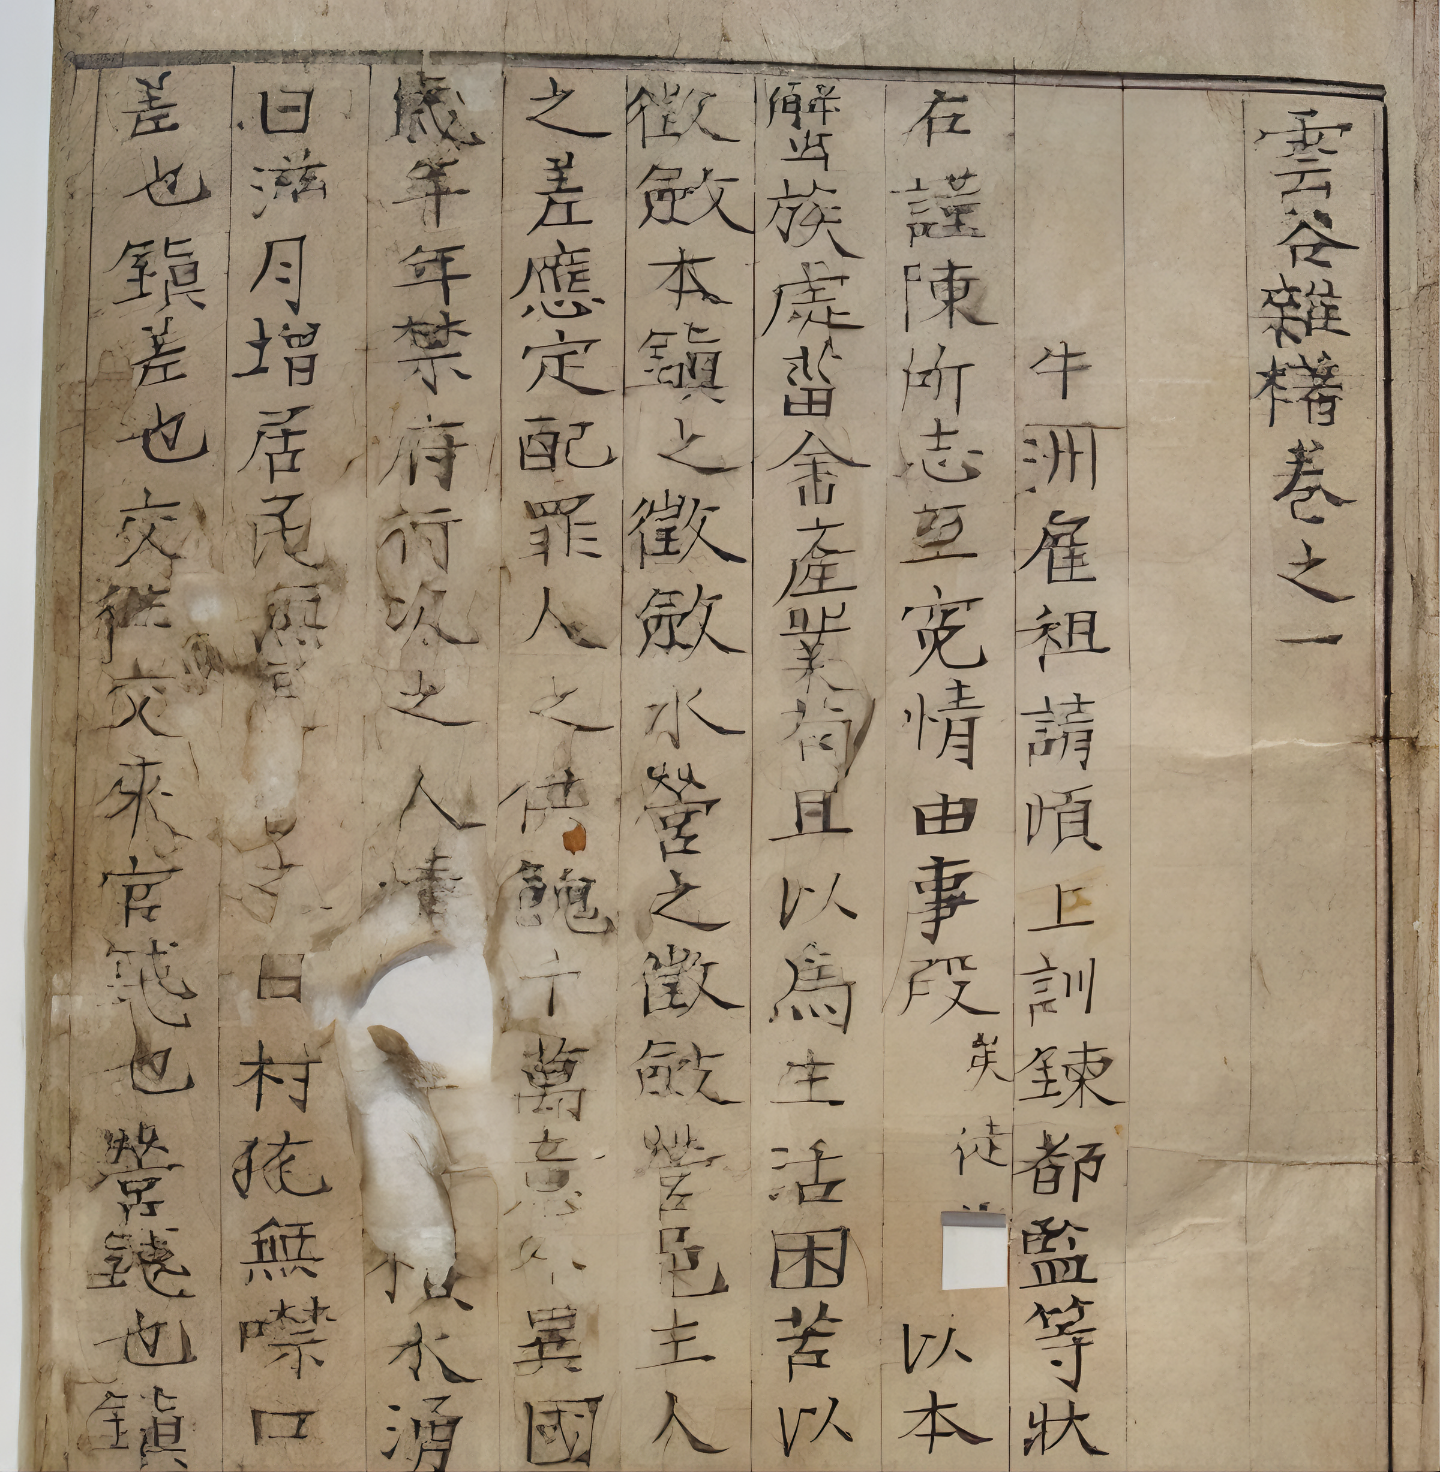 雲谷雜樻卷之一
牛洲雇祖請順上訓鍊都監等狀
右謹陳所志至寃情由事段矣徒以本
蟹族處畓畬產業荷且以爲生活困苦以
徵斂本鎭之徵斂水營之徵斂營邑主人
之差應定配罪人之供餽千萬意外異國
歲年年禁府行次之人情水湧
日滋月增居民日村疪無噤口
差也鎭差也交徃交來官隸也營隸也鎭